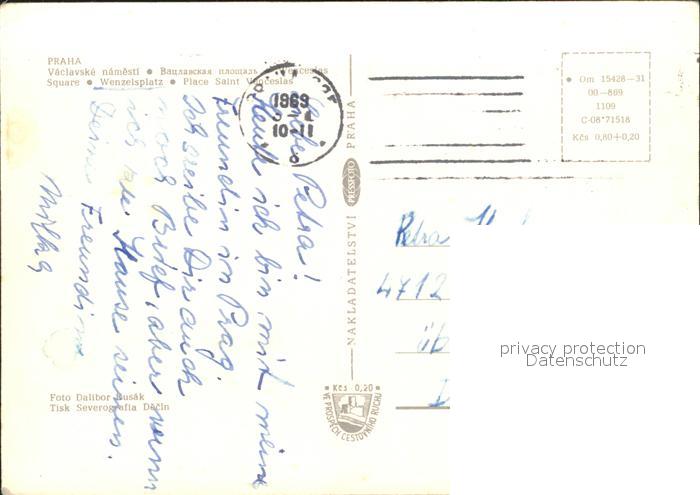 PRAHA
Václavské náměstí ● Вацлавская площадь ● Venceslas
Square ● Wenzelsplatz ● Place Saint Venceslas
Liebe Petra!
Heute ich bin mit meine
Freundin in Prag.
Ich sreibe Dir auch
noch Brief, aber wenn
ich zu Hause seinen.
Deine Freundin
Milka
Foto Dalibor Rusák
Tisk Severografia Děčín
1969
10-11
NAKLADATELSTVÍ
PRESSFOTO
PRAHA
Kčs 0,20
VE PROSPĚCH CESTOVNÍHO RUCHU
● Om 15428—31
00—869
1109
C-08*71518
Kčs 0,80+0,20
Petra
4712
üb
privacy protection
Datenschutz